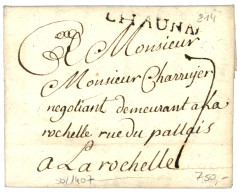 CHAUNAY
314
A Monsieur
Monsieur Charruyer
negotiant demeurant a La
rochelle rue du pallais
a La rochelle
30/1407
750,-